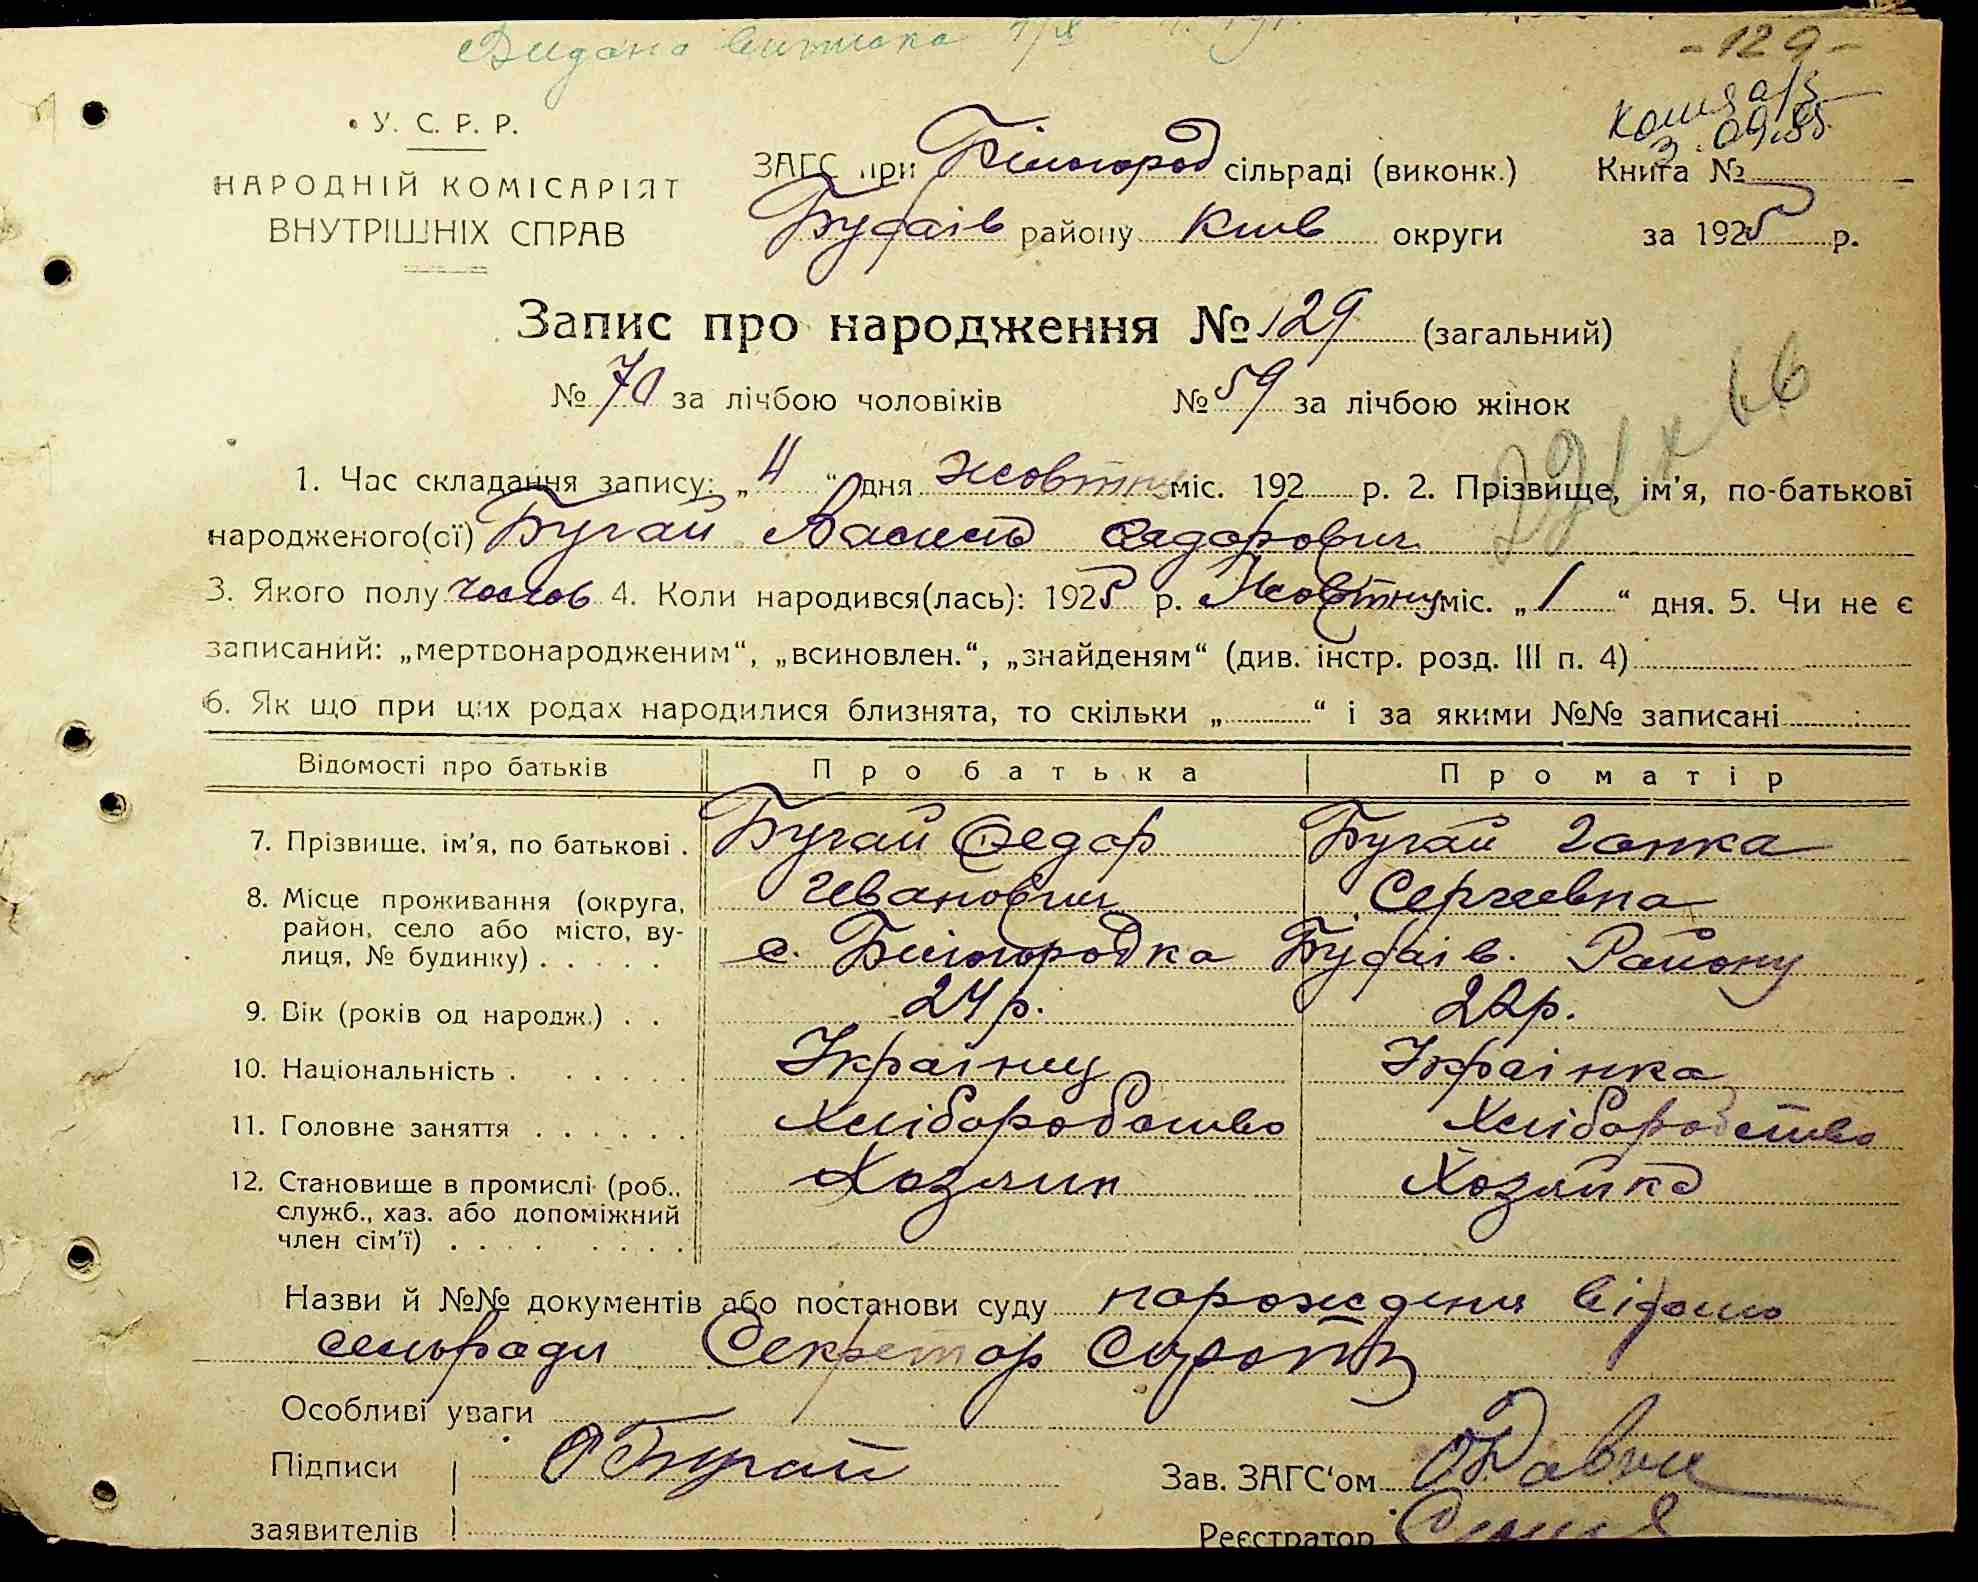 Видана виписка
-129-
У. С. Р. Р.
НАРОДНІЙ КОМІСАРІЯТ
ВНУТРІШНІХ СПРАВ
ЗАГС при Білогород сільраді (виконк.)
Книга №
Будаїв району Київ округи за 1925 р.
Запис про народження № 129 (загальний)
№ 70 за лічбою чоловіків № 59 за лічбою жінок
1. Час складання запису: „4“ дня жовтня міс. 192 р. 2. Прізвище, ім'я, по-батькові
народженого(ої) Бугай Василь Федорович
3. Якого полу чолов 4. Коли народився(лась): 1925 р. Жовтня міс. „1“ дня. 5. Чи не є
записаний: „мертвонародженим“, „всиновлен.“, „знайденям“ (див. інстр. розд. III п. 4)
6. Як що при цих родах народилися близнята, то скільки „ “ і за якими №№ записані
Відомості про батьків Про батька Про матір
7. Прізвище, ім'я, по батькові . Бугай Федор Бугай Ганка
8. Місце проживання (округа, Иванович Сергеевна
район, село або місто, ву-
лиця, № будинку) . . . . . с. Білогородка Будаів. Району
9. Вік (років од народж.) . . 24 р. 22 р.
10. Національність . . . . . . Украінец Украінка
11. Головне заняття . . . . . . Хліборобство Хліборобство
12. Становище в промислі (роб., Хозяин Хозяйка
служб., хаз. або допоміжний
член сім'ї) . . . . . . . .
Назви й №№ документів або постанови суду
сельради Секретар
Особливі уваги
Підписи Бугай Зав. ЗАГС'ом
заявителів Реєстратор